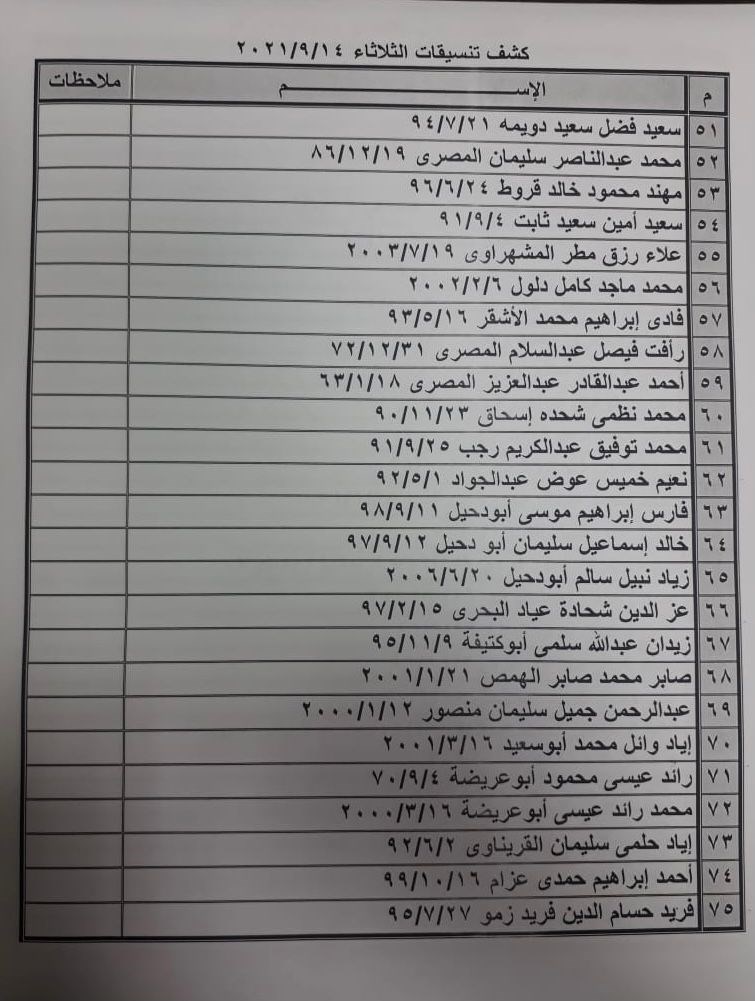 كشف تنسيقات الثلاثاء ٢٠٢١/٩/١٤
م الإســـــــــــــم ملاحظات
٥١ سعيد فضل سعيد دويمه ٩٤/٧/٢١
٥٢ محمد عبدالناصر سليمان المصرى ٨٦/١٢/١٩
٥٣ مهند محمود خالد قروط ٩٦/٦/٢٤
٥٤ سعيد أمين سعيد ثابت ٩١/٩/٤
٥٥ علاء رزق مطر المشهراوى ٢٠٠٣/٧/١٩
٥٦ محمد ماجد كامل دلول ٢٠٠٢/٢/٦
٥٧ فادى إبراهيم محمد الأشقر ٩٣/٥/١٦
٥٨ رأفت فيصل عبدالسلام المصرى ٧٢/١٢/٣١
٥٩ أحمد عبدالقادر عبدالعزيز المصرى ٦٣/١/١٨
٦٠ محمد نظمى شحده إسحاق ٩٠/١١/٢٣
٦١ محمد توفيق عبدالكريم رجب ٩١/٩/٢٥
٦٢ نعيم خميس عوض عبدالجواد ٩٢/٥/١
٦٣ فارس إبراهيم موسى أبودحيل ٩٨/٩/١١
٦٤ خالد إسماعيل سليمان أبو دحيل ٩٧/٩/١٢
٦٥ زياد نبيل سالم أبودحيل ٢٠٠٦/٦/٢٠
٦٦ عز الدين شحادة عياد البحرى ٩٧/٢/١٥
٦٧ زيدان عبدالله سلمى أبوكتيفة ٩٥/١١/٩
٦٨ صابر محمد صابر الهمص ٢٠٠١/١/٢١
٦٩ عبدالرحمن جميل سليمان منصور ٢٠٠٠/١/١٢
٧٠ إياد وائل محمد أبوسعيد ٢٠٠١/٣/١٦
٧١ رائد عيسى محمود أبوعريضة ٧٠/٩/٤
٧٢ محمد رائد عيسى أبوعريضة ٢٠٠٠/٣/١٦
٧٣ إياد حلمى سليمان القريناوى ٩٢/٦/٢
٧٤ أحمد إبراهيم حمدى عزام ٩٩/١٠/١٦
٧٥ فريد حسام الدين فريد زمو ٩٥/٧/٢٧